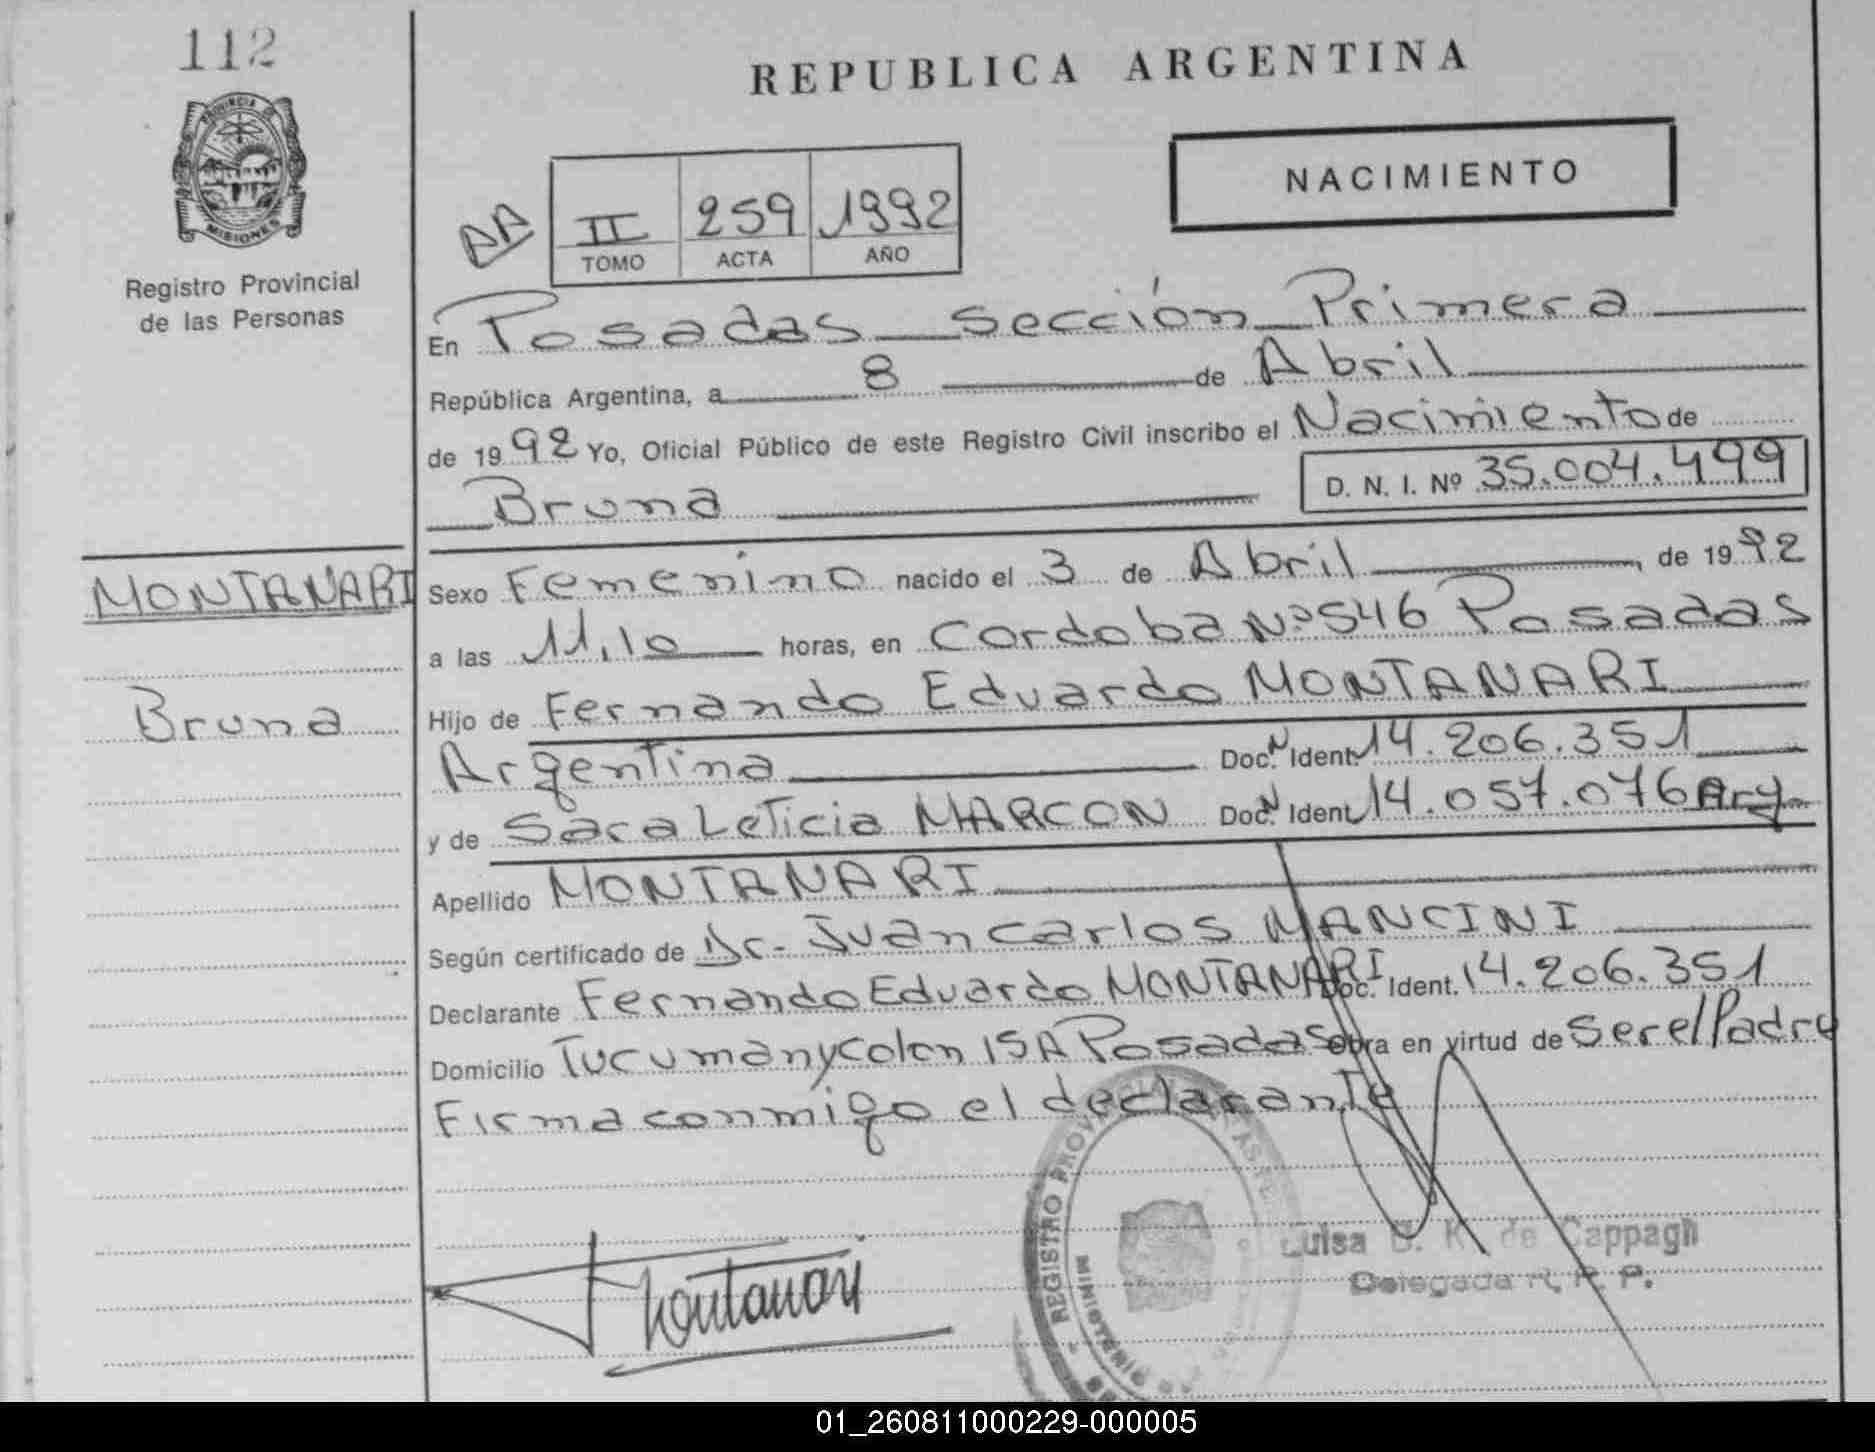 112
REPUBLICA ARGENTINA
PROVINCIA DE
MISIONES
Registro Provincial
de las Personas
NACIMIENTO
AA
II 259 1992
TOMO ACTA AÑO
En Posadas Sección Primera
República Argentina, a 8 de Abril
de 1992 Yo, Oficial Público de este Registro Civil inscribo el Nacimiento de
Bruna D. N. I. Nº 35.004.499
MONTANARI
Bruna
Sexo Femenino nacido el 3 de Abril, de 1992
a las 11,10 horas, en Cordoba Nº 546 Posadas
Hijo de Fernando Eduardo MONTANARI
Argentina Doc. N Ident. 14.206.351
y de Sara Leticia MARCON Doc. N Ident. 14.057.076 Arg.
Apellido MONTANARI
Según certificado de Dr. Juan Carlos MANCINI
Declarante Fernando Eduardo MONTANARI Doc. Ident. 14.206.351
Domicilio Tucuman y Colon 15A Posadas Obra en virtud de Ser el Padre
Firma conmigo el declarante
Montanari
REGISTRO PROVINCIAL
MINISTERIO
Luisa K. de Cappagh
Delegada R. P. P.
01_260811000229-000005